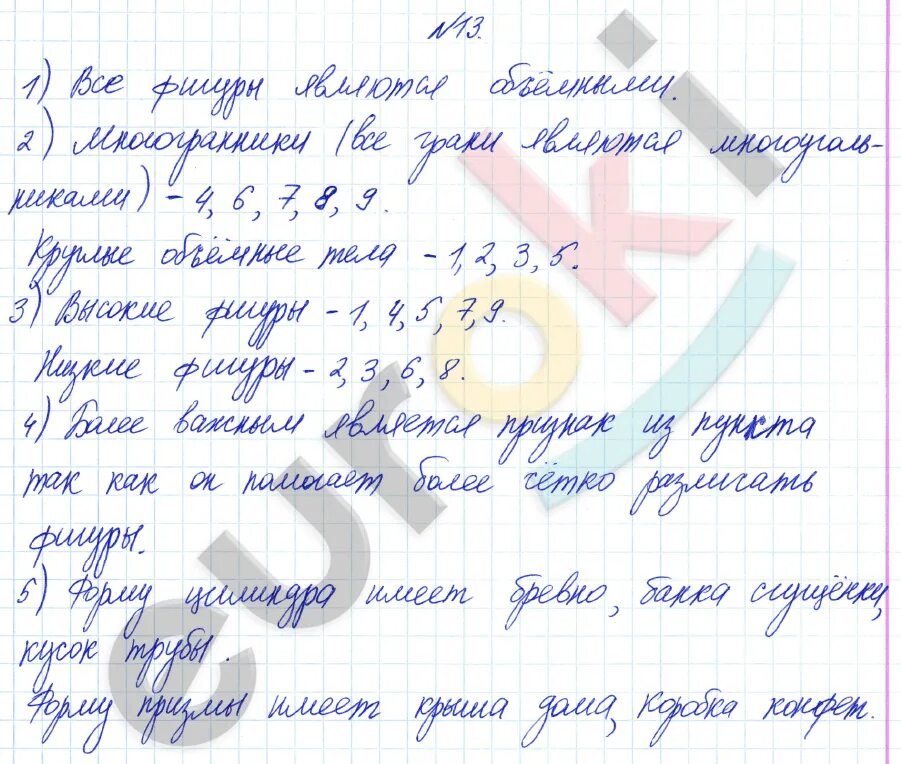 №13.
1) Все фигуры являются объёмными.
2) Многогранники (все грани являются многоуголь-
никами) - 4, 6, 7, 8, 9.
Круглые объёмные тела - 1, 2, 3, 5.
3) Высокие фигуры - 1, 4, 5, 7, 9.
Низкие фигуры - 2, 3, 6, 8.
4) Более важным является признак из пункта
так как он помогает более чётко различать
фигуры.
5) Форму цилиндра имеет бревно, банка сгущёнки,
кусок трубы.
Форму призмы имеет крыша дома, коробка конфет.
euroki